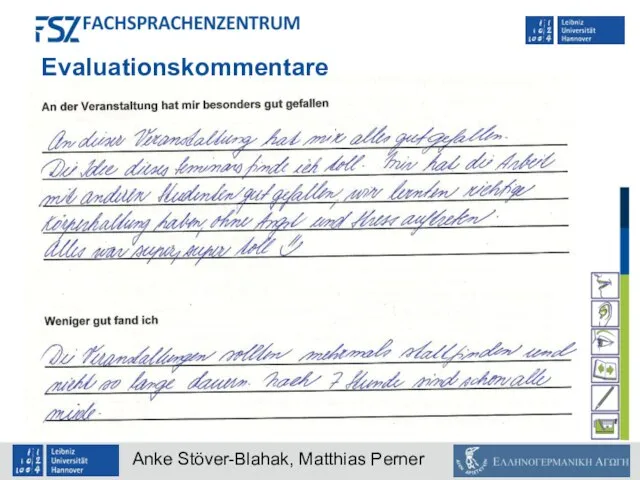 FSZ FACHSPRACHENZENTRUM
Leibniz
Universität
Hannover
Evaluationskommentare
An der Veranstaltung hat mir besonders gut gefallen
An dieser Veranstaltung hat mir alles gut gefallen.
Die Idee dieses Seminars finde ich toll. Mir hat die Arbeit
mit anderen Studenten gut gefallen, wir lernten richtige
Körperhaltung haben, ohne Angst und Stress auftreten.
Alles war super, super toll
Weniger gut fand ich
Die Veranstaltungen sollten mehrmals stattfinden und
nicht so lange dauern. Nach 7 Stunde sind schon alle
müde.
Leibniz
Universität
Hannover
Anke Stöver-Blahak, Matthias Perner
ΕΛΛΗΝΟΓΕΡΜΑΝΙΚΗ ΑΓΩΓΗ